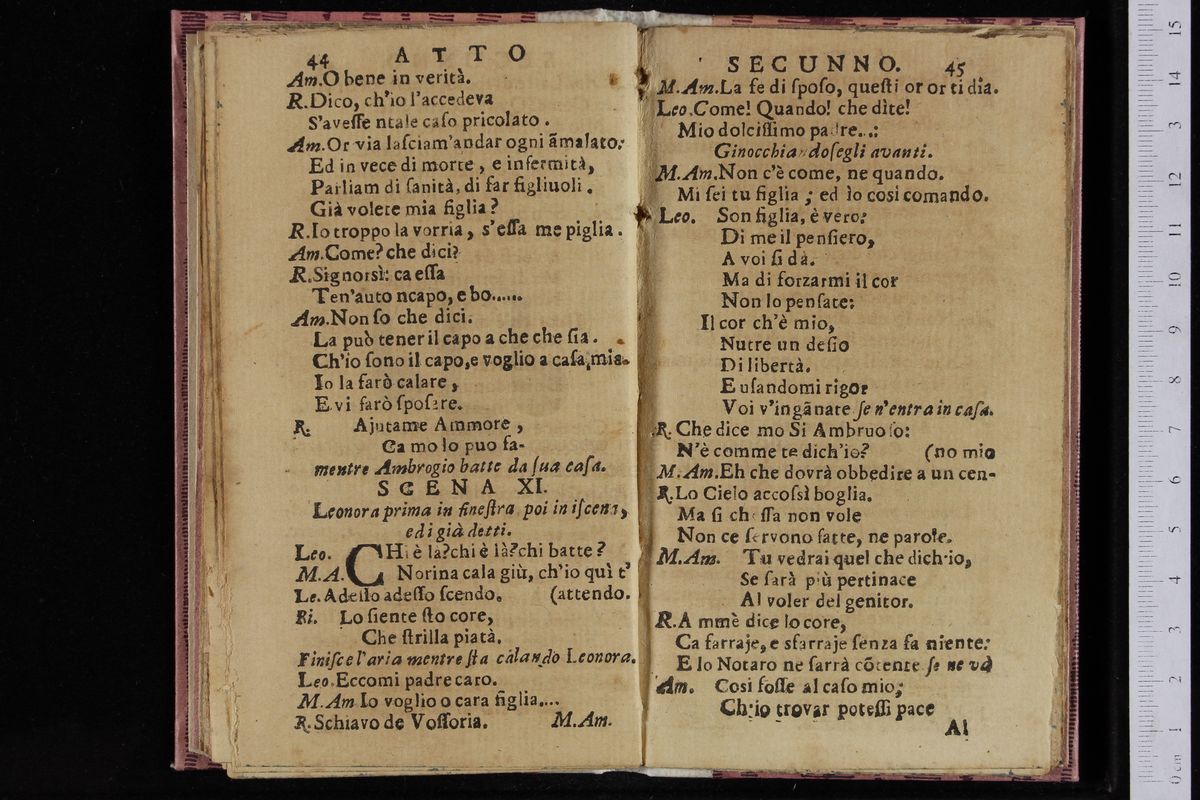 44 ATTO
Am.O bene in verità.
R.Dico, ch'io l'accedeva
S'aveſſe ntale caſo pricolato.
Am.Or via laſciam'andar ogni ãmalato:
Ed in vece di morte, e infermità,
Parliam di ſanità, di far figliuoli.
Già volete mia figlia?
R.Io troppo la vorria, s'eſſa me piglia.
Am.Come? che dici?
R.Signorsì: ca eſſa
Ten'auto ncapo, e bo......
Am.Non ſo che dici.
La può tener il capo a che che ſia.
Ch'io ſono il capo,e voglio a caſa mia.
Io la farò calare,
E vi farò ſpoſare.
R. Ajutame Ammore,
Ca mo lo puo fa-
mentre Ambrogio batte da ſua caſa.
SCENA XI.
Leonora prima in fineſtra poi in iſcena,
e di già detti.
Leo. CHi è là?chi è là?chi batte?
M.A. Norina cala giù, ch'io quì t'
Le.Adeſſo adeſſo ſcendo. (attendo.
Ri. Lo ſiente ſto core,
Che ſtrilla piatà.
Finiſce l'aria mentre ſta calando Leonora.
Leo.Eccomi padre caro.
M.Am Io voglio o cara figlia....
R.Schiavo de Voſſoria. M.Am.
SECUNNO. 45
M.Am.La fe di ſpoſo, queſti or or ti dia.
Leo.Come! Quando! che dite!
Mio dolciſſimo padre..:
Ginocchiandoſegli avanti.
M.Am.Non c'è come, ne quando.
Mi ſei tu figlia; ed io cosi comando.
Leo. Son figlia, è vero:
Di me il penſiero,
A voi ſi dà.
Ma di forzarmi il cor
Non lo penſate:
Il cor ch'è mio,
Nutre un deſio
Di libertà.
E uſandomi rigor
Voi v'ingãnate ſe n'entra in caſa.
R. Che dice mo Si Ambruoſo:
N'è comme te dich'io? (no mio
M.Am.Eh che dovrà obbedire a un cen-
R.Lo Cielo accoſsì boglia.
Ma ſi ch'eſſa non vole
Non ce ſervono fatte, ne parole.
M.Am. Tu vedrai quel che dich'io,
Se ſarà più pertinace
Al voler del genitor.
R.A mmè dice lo core,
Ca farraje, e sfarraje ſenza fa niente:
E lo Notaro ne farrà cõtente ſe ne và
Am. Cosi foſſe al caſo mio;
Ch'io trovar poteſſi pace
Al